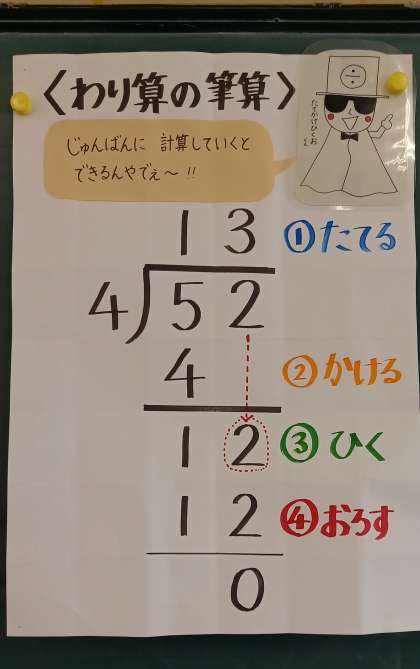 〈わり算の筆算〉
÷
たすかけひくお
くん
じゅんばんに 計算していくと
できるんやでぇ〜!!
13
①たてる
4)52
4
②かける
12
③ひく
12
④おろす
0